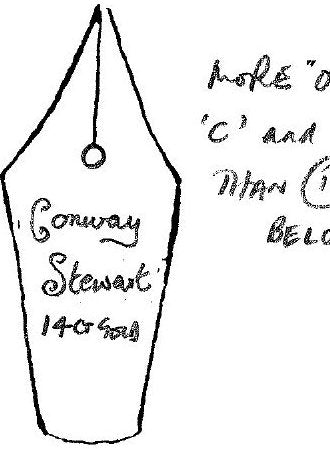 Conway
Stewart
14ct Gold
MORE "O
'C' and
THAN (1
BELO